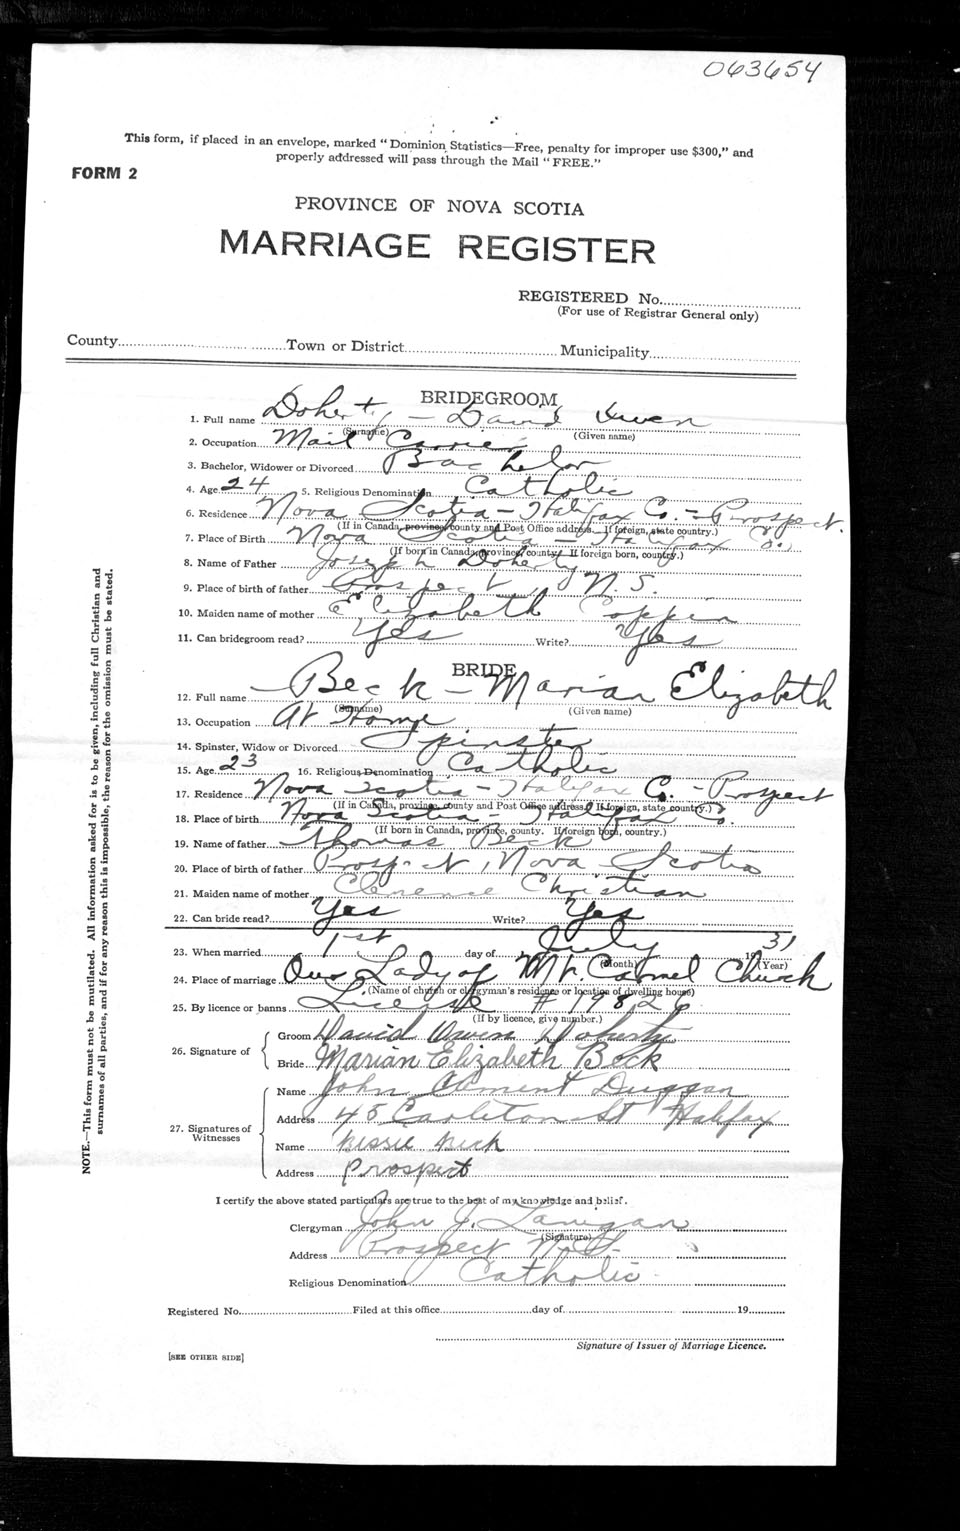 063654
This form, if placed in an envelope, marked "Dominion Statistics—Free, penalty for improper use $300," and
properly addressed will pass through the Mail "FREE."
FORM 2
PROVINCE OF NOVA SCOTIA
MARRIAGE REGISTER
REGISTERED No.
(For use of Registrar General only)
County Town or District Municipality
BRIDEGROOM
1. Full name Doherty – David Owen
(Surname) (Given name)
2. Occupation Mail Carrier
3. Bachelor, Widower or Divorced Bachelor
4. Age 24 5. Religious Denomination Catholic
6. Residence Nova Scotia – Halifax Co. – Prospect.
(If in Canada, province, county and Post Office address. If foreign, state country.)
7. Place of Birth Nova Scotia – Halifax Co.
(If born in Canada, province, county. If foreign born, country.)
8. Name of Father Joseph Doherty
9. Place of birth of father Prospect, N.S.
10. Maiden name of mother Elizabeth Coppin
11. Can bridegroom read? Yes Write? Yes
BRIDE
12. Full name Beck – Marian Elizabeth
(Surname) (Given name)
13. Occupation At Home
14. Spinster, Widow or Divorced Spinster
15. Age 23 16. Religious Denomination Catholic
17. Residence Nova Scotia – Halifax Co. – Prospect
(If in Canada, province, county and Post Office address. If foreign, state country.)
18. Place of birth Nova Scotia – Halifax Co.
(If born in Canada, province, county. If foreign born, country.)
19. Name of father Thomas Beck
20. Place of birth of father Prospect, Nova Scotia
21. Maiden name of mother Clemence Christian
22. Can bride read? Yes Write? Yes
23. When married 1st day of July 1931
(Month) (Year)
24. Place of marriage Our Lady of Mt Carmel Church
(Name of church or clergyman's residence or location of dwelling house)
25. By licence or banns License # 19826
(If by licence, give number.)
26. Signature of Groom David Owen Doherty
Bride Marian Elizabeth Beck
27. Signatures of Witnesses Name John Clement Duggan
Address 45 Carleton St Halifax
Name Bessie Beck
Address Prospect
I certify the above stated particulars are true to the best of my knowledge and belief.
Clergyman John J. Lanigan
(Signature)
Address Prospect N.S.
Religious Denomination Catholic
Registered No. Filed at this office day of 19
Signature of Issuer of Marriage Licence.
[SEE OTHER SIDE]
NOTE.—This form must not be mutilated. All information asked for is to be given, including full Christian and
surnames of all parties, and if for any reason this is impossible, the reason for the omission must be stated.